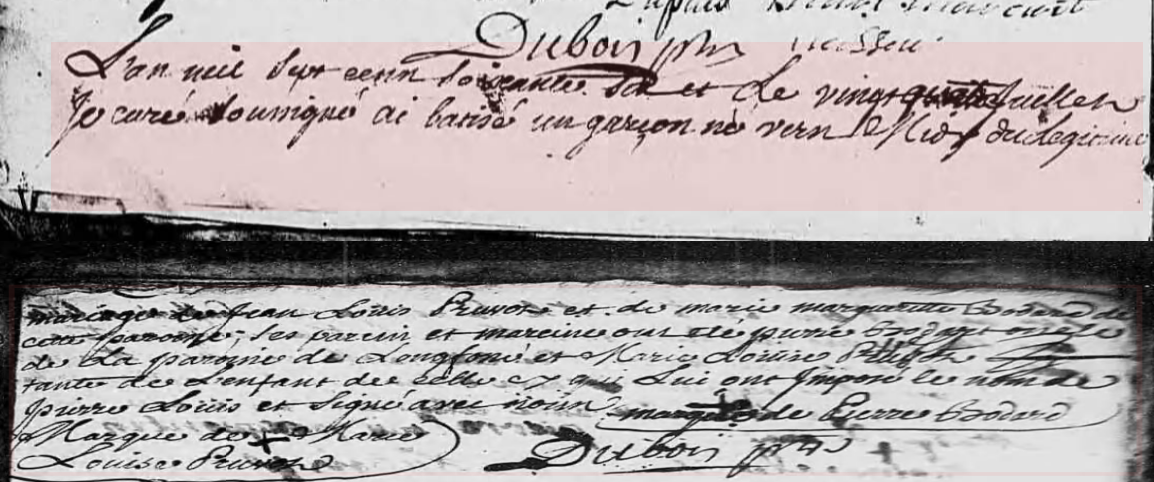 Dubois ptre
L'an mil sept cenn soixante six et Le vingt quatre Juillet
Je curé Soussigné ai batisé un garçon né vern le Midy du Legitime
mariage de Jean Louis Pruvot et de marie margueritte Bodard de
cette paroisse; ses parein et mareine ont ete pierre Bodart oncle
de La paroisse de Longfossé et Marie Louise
tante de L'enfant de celle cy qui Lui ont Imposé le nom de
pierre Louis et Signé avec nous marque de Pierre Bodard
Marque de + Marie
Louise Pruvot
Dubois ptre